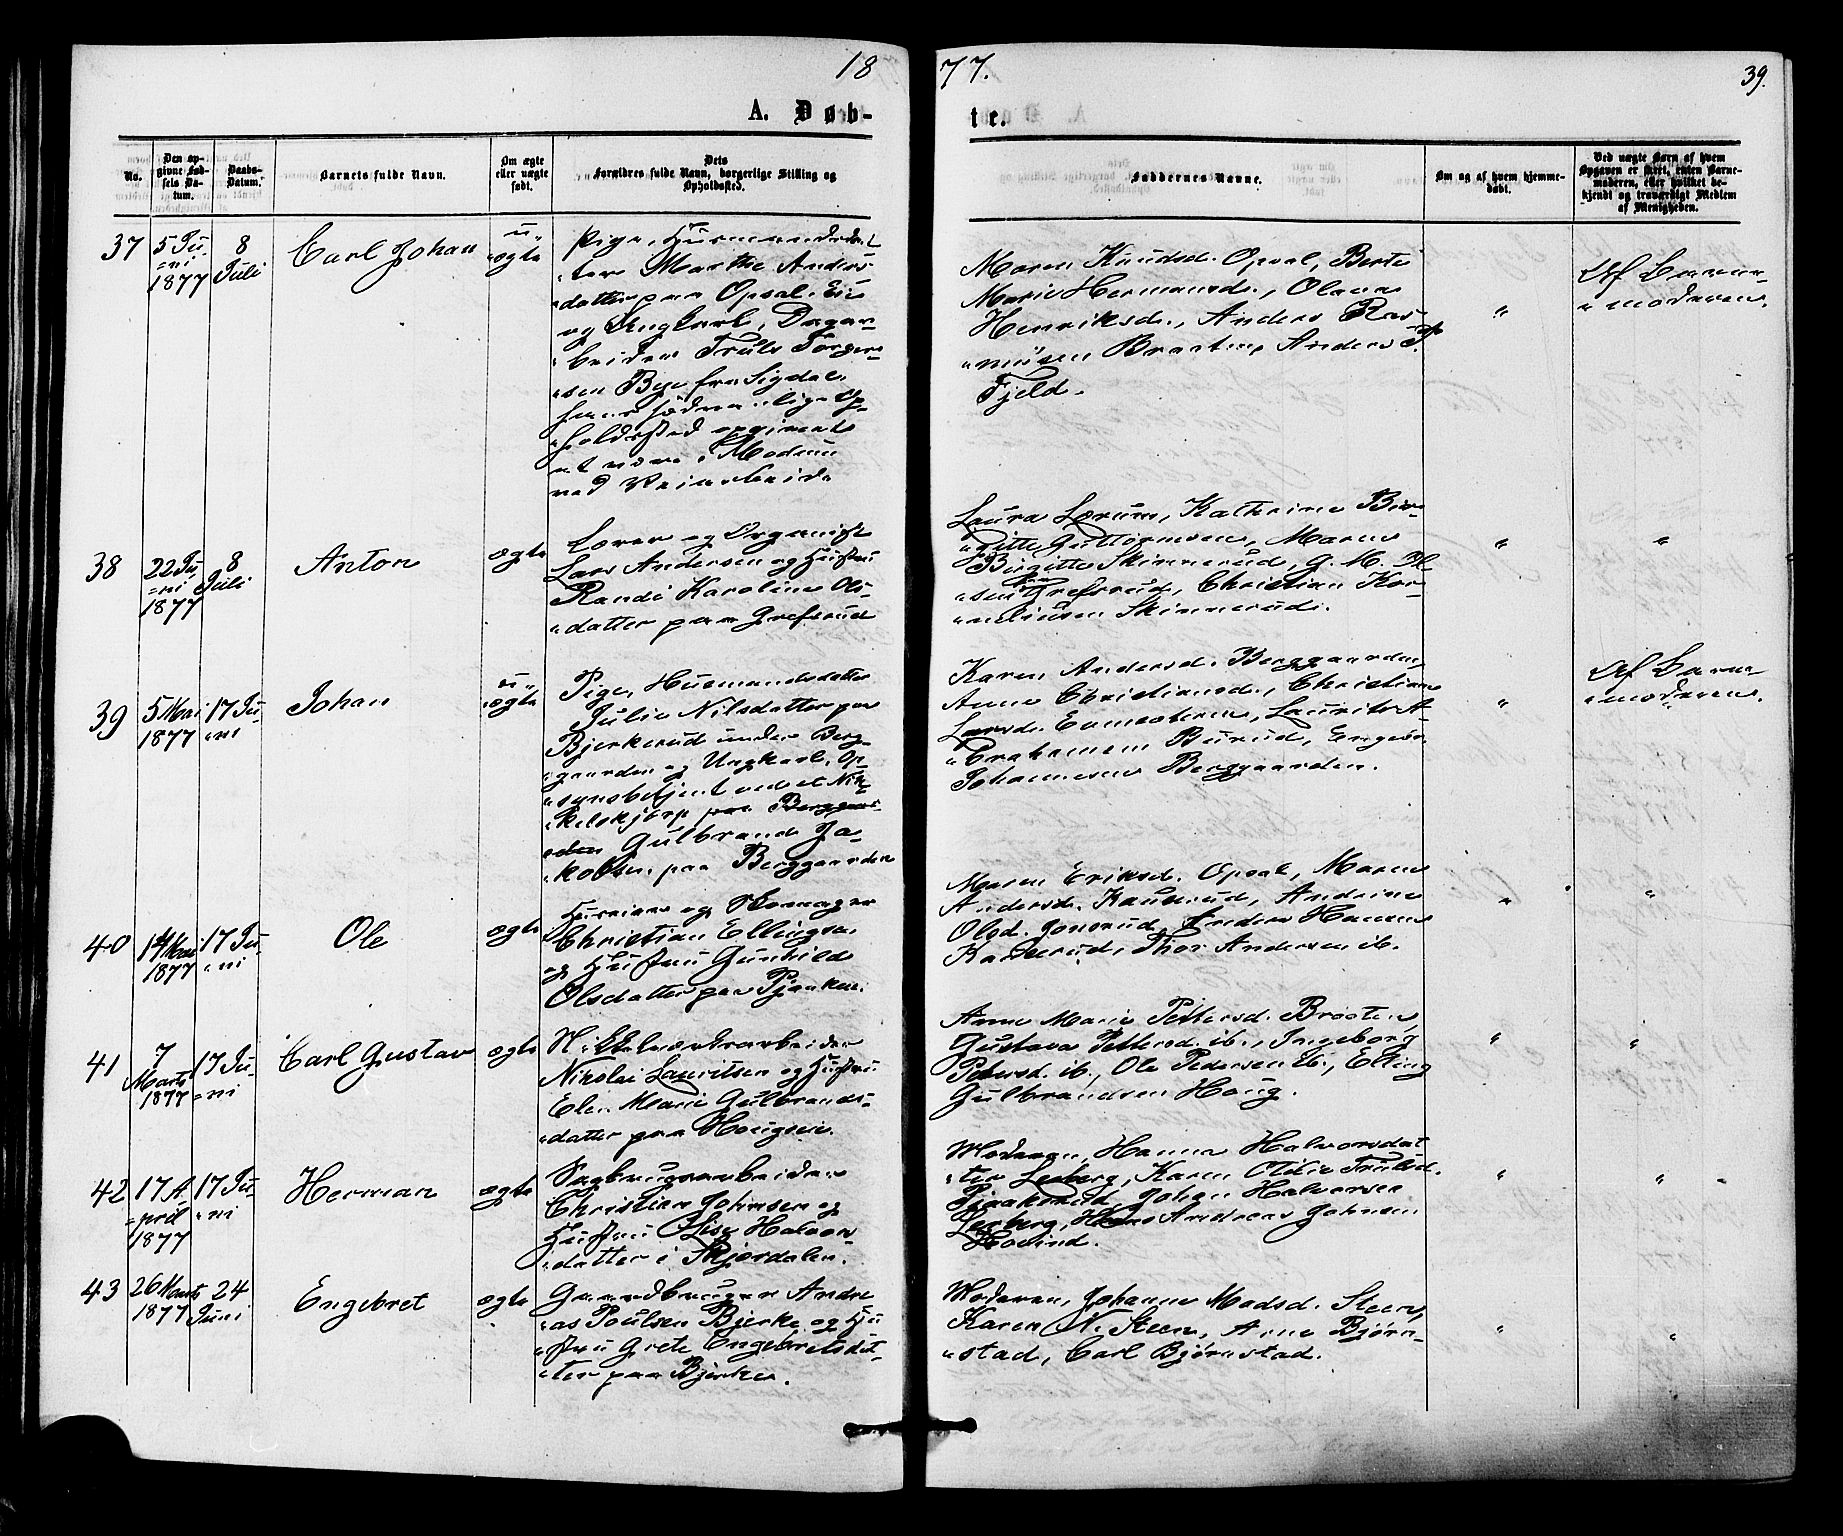 18
77.
39.
A. Døb-
te.
No.
Den op-
givne Fød-
sels Da-
tum.
Daabs-
Datum.
Barnets fulde Navn.
Om ægte
eller uægte
født.
Dets
Forældres fulde Navn, borgerlige Stilling og
Opholdssted.
Faddernes Navne.
Om og af hvem hjemme-
døbt.
Ved uægte Børn af hvem
Opgaven er skeet, enten Barne-
moderen, eller hvilket be-
kjendt og troværdigt Medlem
af Menigheden.
37
5 Ju-
=ni
1877
8
Juli
Carl Johan
u-
ægte
Pige, Husmandsdat-
ter Marthe Anders-
datter paa Opsal
og Ungkarl, Dagar-
beider Truls Torger-
sen Bye fra Sigdal,
Op-
holdssted opgivent
at være i Modum
ved Veiarbeide
Maren Knudsd. Opsal, Berte
Marie Hermansd., Olava
Henriksd., Anders Ras-
mussen Braaten, Anders
Fjeld.
"
Af Barne-
moderen.
38
22 Ju-
=ni
1877
8
Juli
Anton
ægte
Lærer og Organist
Lars Andersen og Hustru
Randi Karoline Ols-
datter paa Grefsrud
Laura Lærum, Kathrine Bir-
gitte Guttormsen, Maren
Birgitte Skinnerud, G. M. Ol-
sen Grefsrud, Christian Kor-
neliusen Skinnerud.
"
"
39
5 Mai
1877
17 Ju-
=ni
Johan
u-
ægte
Pige, Husmandsdatter
Julie Nilsdatter paa
Bjerkerud under Berg-
gaarden og Ungkarl, Op-
synsbetjent ved et Nik-
kelskjærp paa Berggaar-
den Gulbrand Ja-
kobsen paa Berggaarden
Karen Andersd. Berggaarden,
Anne Christiansd., Christian
Larsd. Lauritz A-
brahamsen Burud, Engebr.
Johannesen Berggaarden.
"
Af Barne-
moderen.
40
14 Mai
1877
17 Ju-
=ni
Ole
ægte
Huseier og Skomager
Christian Ellingsen
og Hustru Gunhild
Olsdatter paa
Maren Eriksd. Opsal, Maren
Andersd. Kaurud, Andrine
Olsd. Anders Hansen
Thor Andersen ib.
"
"
41
7
Marts
1877
17 Ju-
=ni
Carl Gustav
ægte
Nikkelværksarbeider
Nikolai Lauritsen og Hustru
Elen Marie Gulbrands-
datter paa Hougen.
Anne Marie Pettersd. Braaten,
Gustava Pettersd. ib., Ingeborg
Petersd. ib., Ole Pedersen ib., Elling
Gulbrandsen Houg.
"
"
42
17 A-
=pril
1877
17 Ju-
=ni
Herman
ægte
Sagbrugsarbeider
Christian Johnsen og
Hustru Lise Halvors-
datter i Skjørdalen.
Moderen, Hanna Halvorsdat-
ter Leeberg, Karen Otilie Trulsd.
Johan Halvorsen
Leeberg, Hans Andreas Johnsen
Hovind.
"
"
43
26 Marts
1877
24
Juni
Engebret
ægte
Gaardbruger Andre-
as Poulsen Bjerke og Hu-
stru Grete Engebretsdat-
ter paa Bjerke.
Moderen, Johanne Madsd. Steen,
Karen N. Steen, Arne Bjørn-
stad, Carl Bjørnstad.
"
"